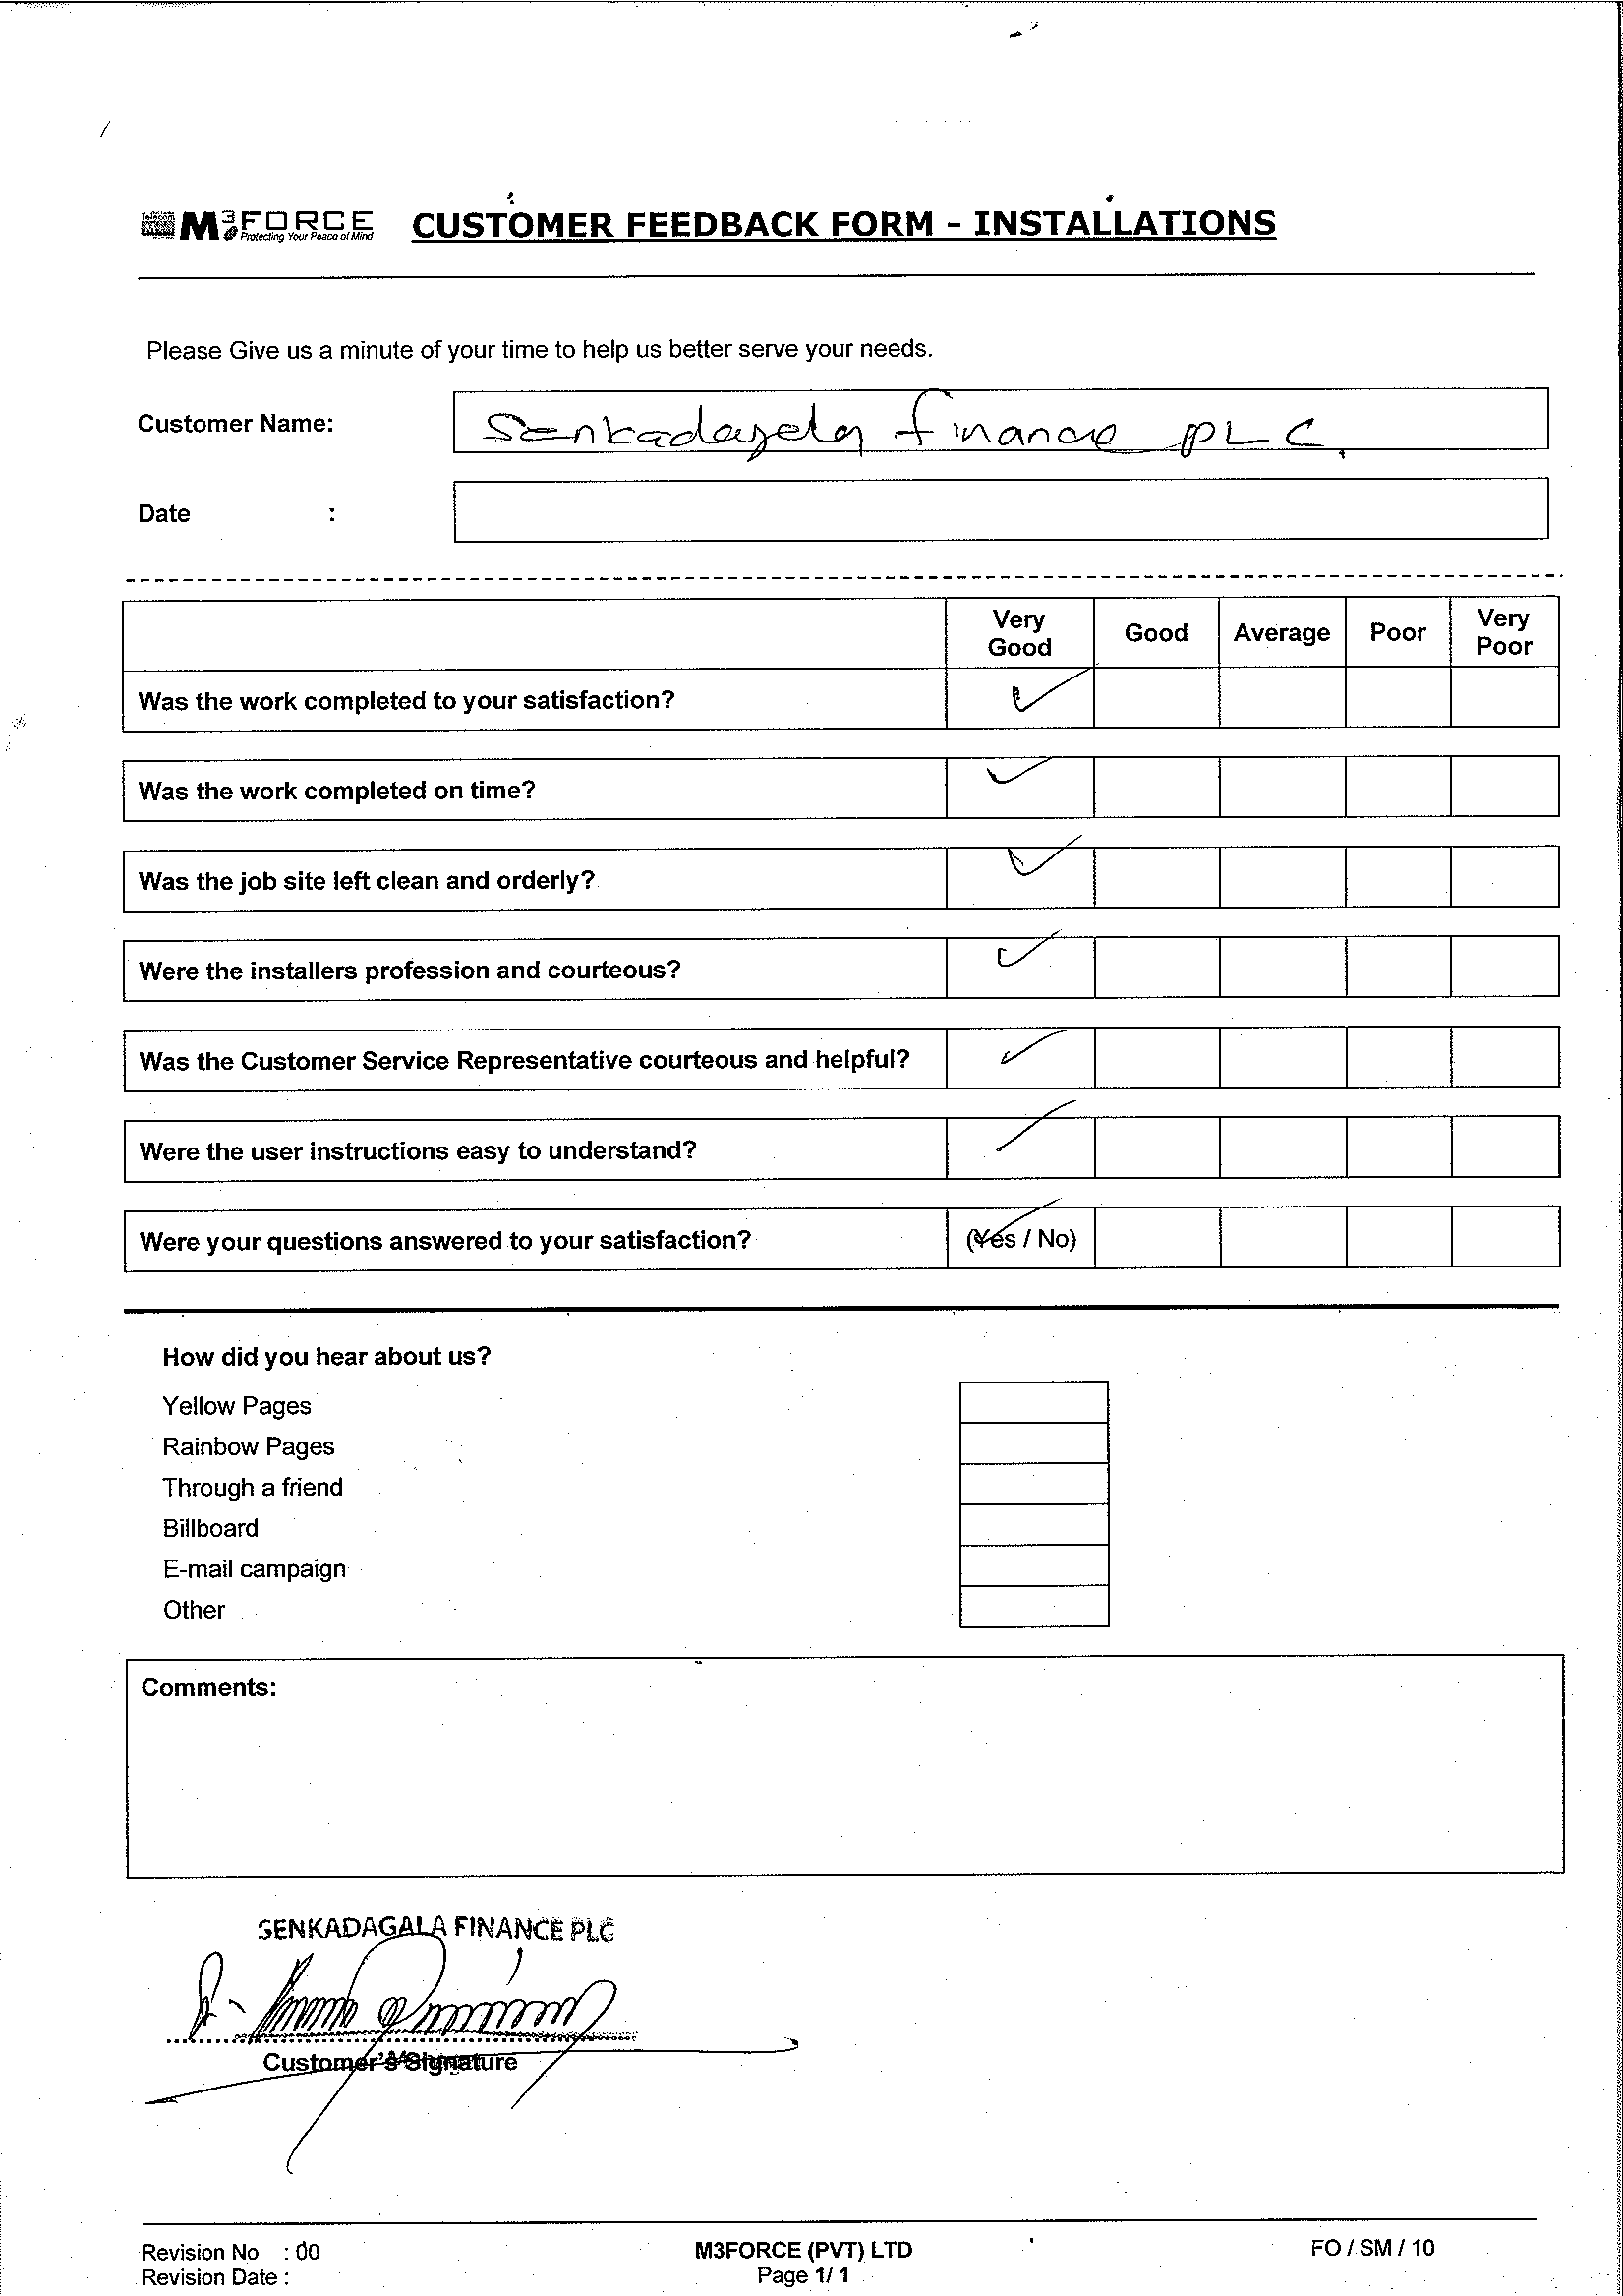 M3FORCE CUSTOMER FEEDBACK FORM - INSTALLATIONS
Protecting Your Peace of Mind
Please Give us a minute of your time to help us better serve your needs.
Customer Name: Senkadagela finance PLC.
Date :
Very Good Good Average Poor Very Poor
Was the work completed to your satisfaction?
Was the work completed on time?
Was the job site left clean and orderly?
Were the installers profession and courteous?
Was the Customer Service Representative courteous and helpful?
Were the user instructions easy to understand?
Were your questions answered to your satisfaction? (Yes / No)
How did you hear about us?
Yellow Pages
Rainbow Pages
Through a friend
Billboard
E-mail campaign
Other
Comments:
SENKADAGALA FINANCE PLC
Customer's Signature
Revision No : 00 M3FORCE (PVT) LTD FO / SM / 10
Revision Date : Page 1/ 1